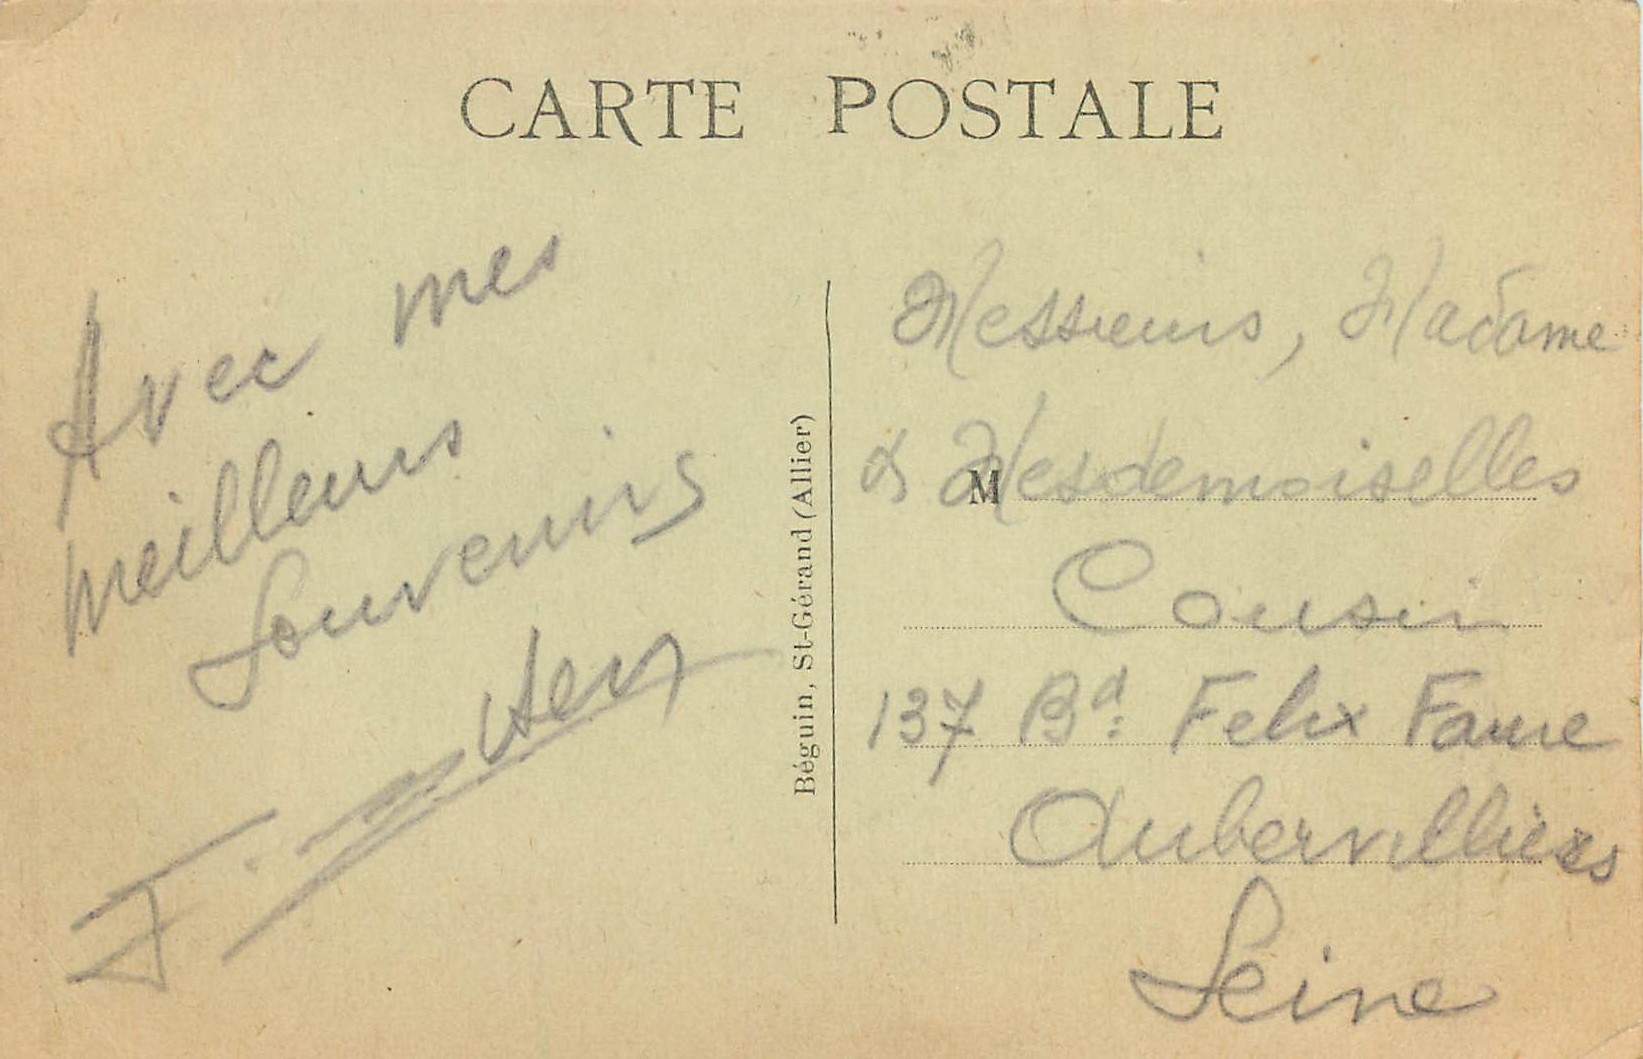 CARTE POSTALE
Avec mes
meilleurs
Souvenirs
F.
Béguin, St-Gérand (Allier)
Messieurs, Madame
& Mesdemoiselles
M
Cousin
137 Bd: Felix Faure
Aubervilliers
Seine